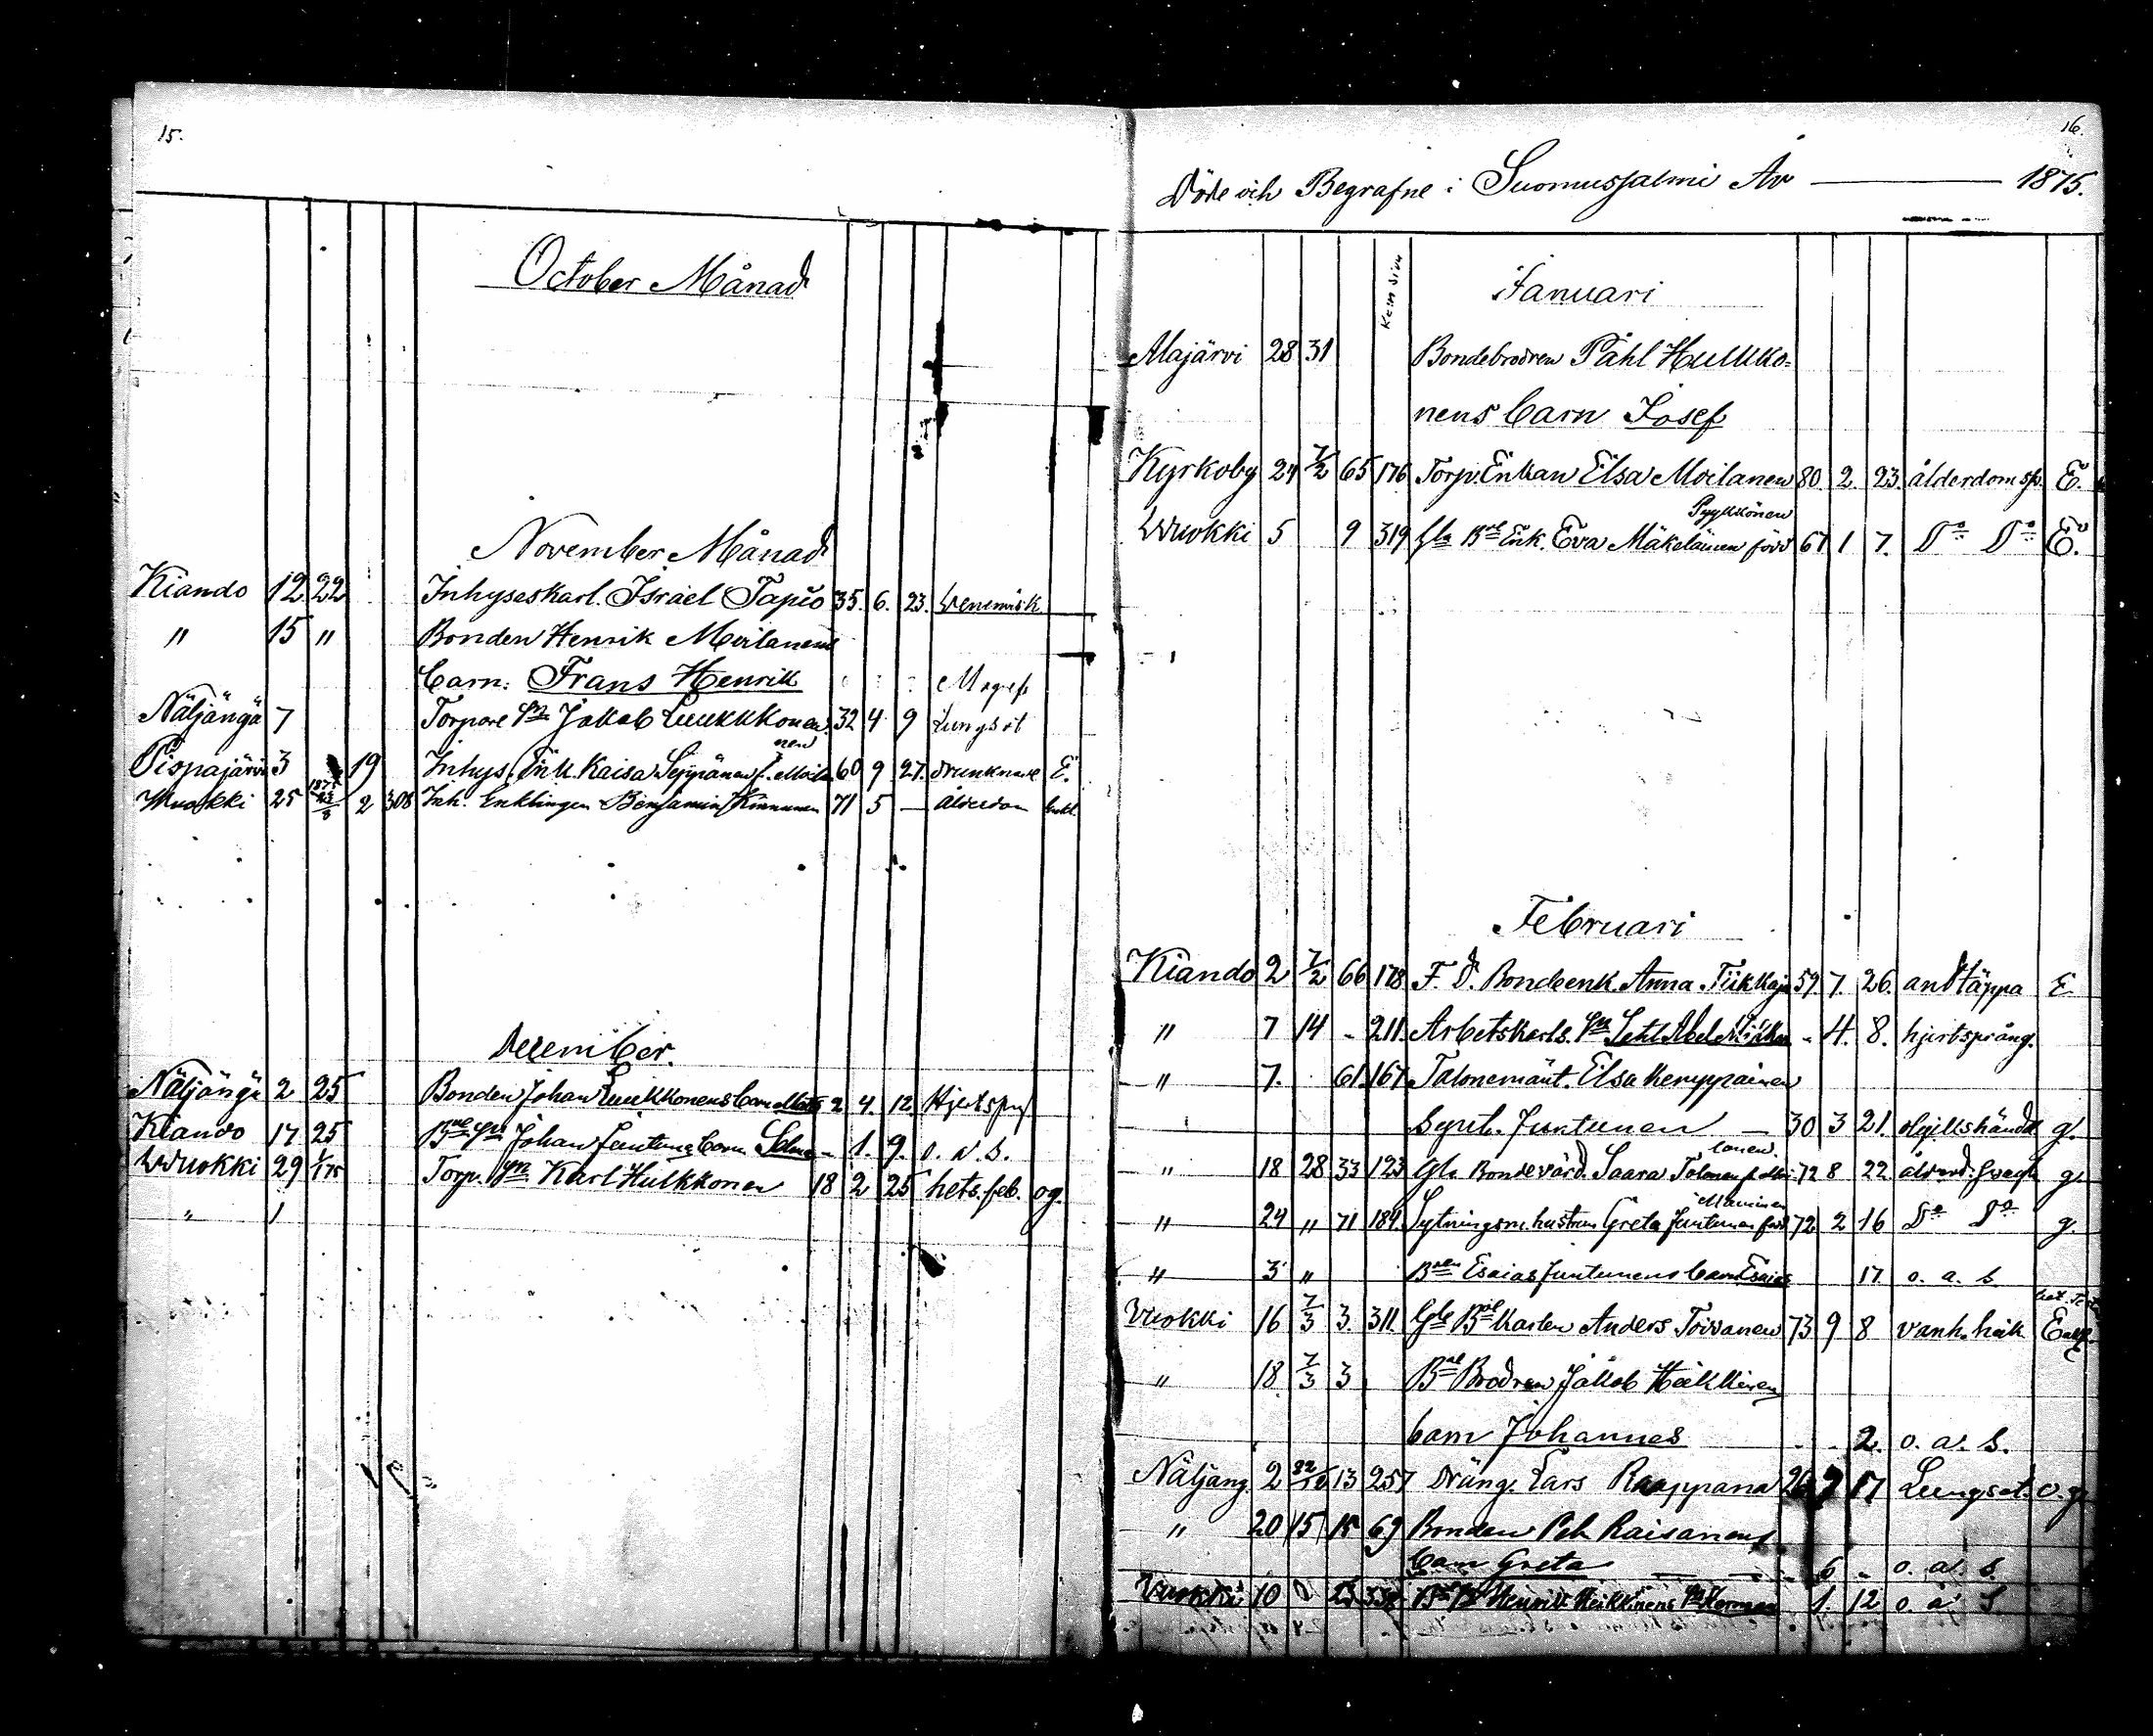 15.
October Månad
November Månad
Kiando 12 22 Inhyseskarl. Israel Tapio 35. 6. 23. Wenerisk
" 15 " Bonden Henrik Moilanens
barn: Frans Henrik
Näljängä 7 Torpare Sn Jakob Luukkkonen. 32 4 9 Lungsot
nen
Pispajärvi 3 19 Inhys. Enk. Kaisa Seppänen f. Moila 60 9 27. drunknade E.
Wuokki 25 2 308 Inh. Enklingen Benjamin Kinnunen 71 5 — Ålderdom Enkl.
December.
Näljängä 2 25 Bonden Johan Luukkonens barn Matts 2 4. 12. Hjertspr
Kiando 17 25 Johan Juntuns barn Selma - 1. 9. o. a. s.
Wuokki 29 1/1 75 Torp. sn Karl Hulkkonen 18 2 25 hets. feb. og.
" 1
16.
Döde och Begrafne i Suomussalmi År — 1875.
Januari
Alajärvi 28 31 Bondebrodren Påhl Hulkko-
nens barn Josef
Kyrkoby 24 7/2 65 176 Torp. Enkan Elsa Moilanen 80. 2. 23. ålderdomsk. E.
Pyykkönen
Wuokki 5 9 319 Gla Bde Enk. Eva Mäkeläinen född 67 1 7. Do Do E.
Februari
Kiando 2 7/2 66 178 F. D. Bondeenk. Anna Tiikkaja 59 7. 26. andtäppa E
" 7 14 - 211. Arbetskarls. Sn - 4. 8. hjertsprång.
" 7. 61. 167 Talonemänt. Elsa Kemppainen
Synt. Juntunen — 30 3 21. g.
lonen.
" 18 28 33 123 Gla Bondevärd. Saara Tolonen 72 8 22. g.
Manninen
" 24 " 71 189. Sytningsm. hustrun Greta Juntunen född 72 2 16 Do Do g.
" 3 " Bden Esaias Juntunens barn Esaias 17. o. a. s
Vuokki 16 7/3 3. 311. Gla Bde karlen Anders Toivanen 73 9 8 vanh. heik Enkl
" 18 7/3 3 Bde Brodren Jakob Heikkinens
barn Johannes 2. o. a. s.
Näljäng. 2 13 257 Dräng. Lars Raappana 26 9 17 Lungsot. o. g.
" 20 15 15 69 Bonden Peh. Räisänens
barn Greta 6 - o. a. s
Vuokki 10 Henrik Heikkinens Sn Herman 1. 12 o. a. S.